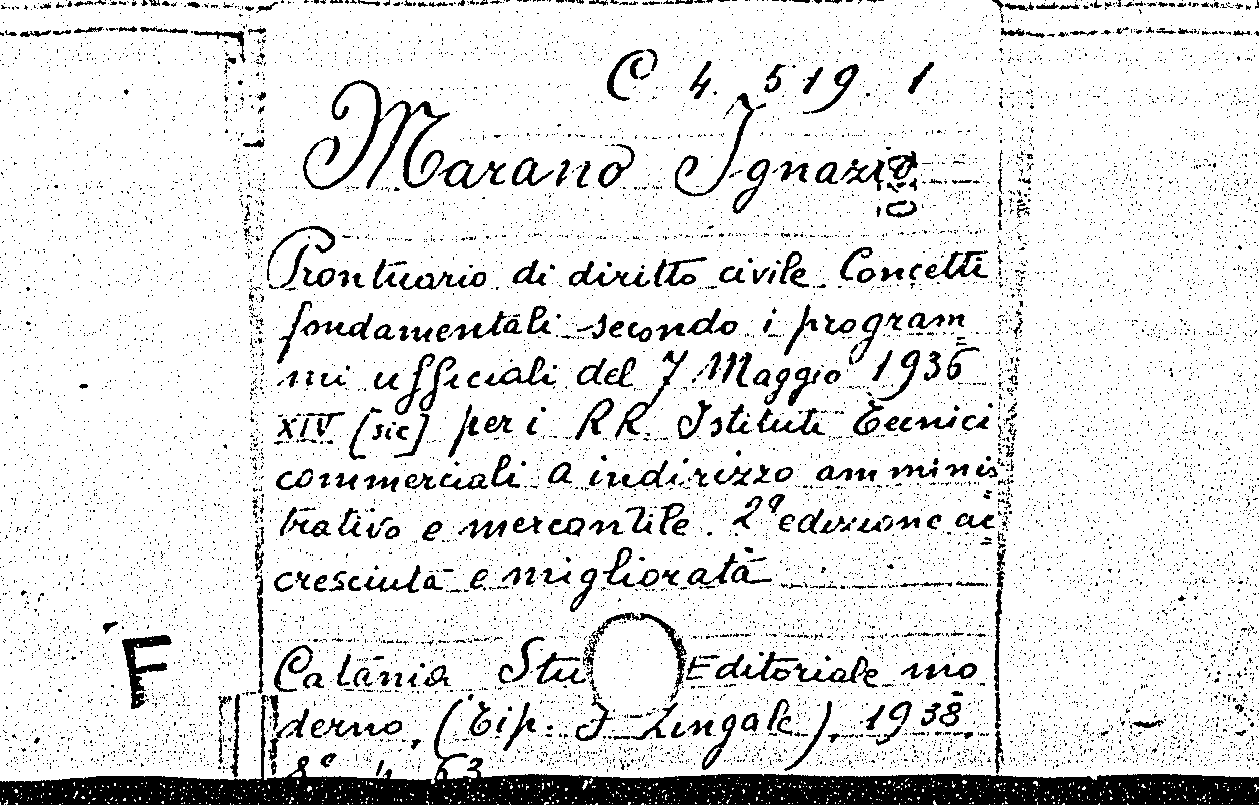 C 4. 519. 1
Marano Ignazio
Prontuario di diritto civile Concetti
fondamentali secondo i program
mi ufficiali del 7 Maggio 1936
XIV [sic] per i RR. Istituti Tecnici
commerciali a indirizzo amminis
trativo e mercantile. 2ª edizione ac
cresciuta e migliorata
Catania Stu Editoriale mo
F
derno, (Tip. Zingale), 1938.
8° 63